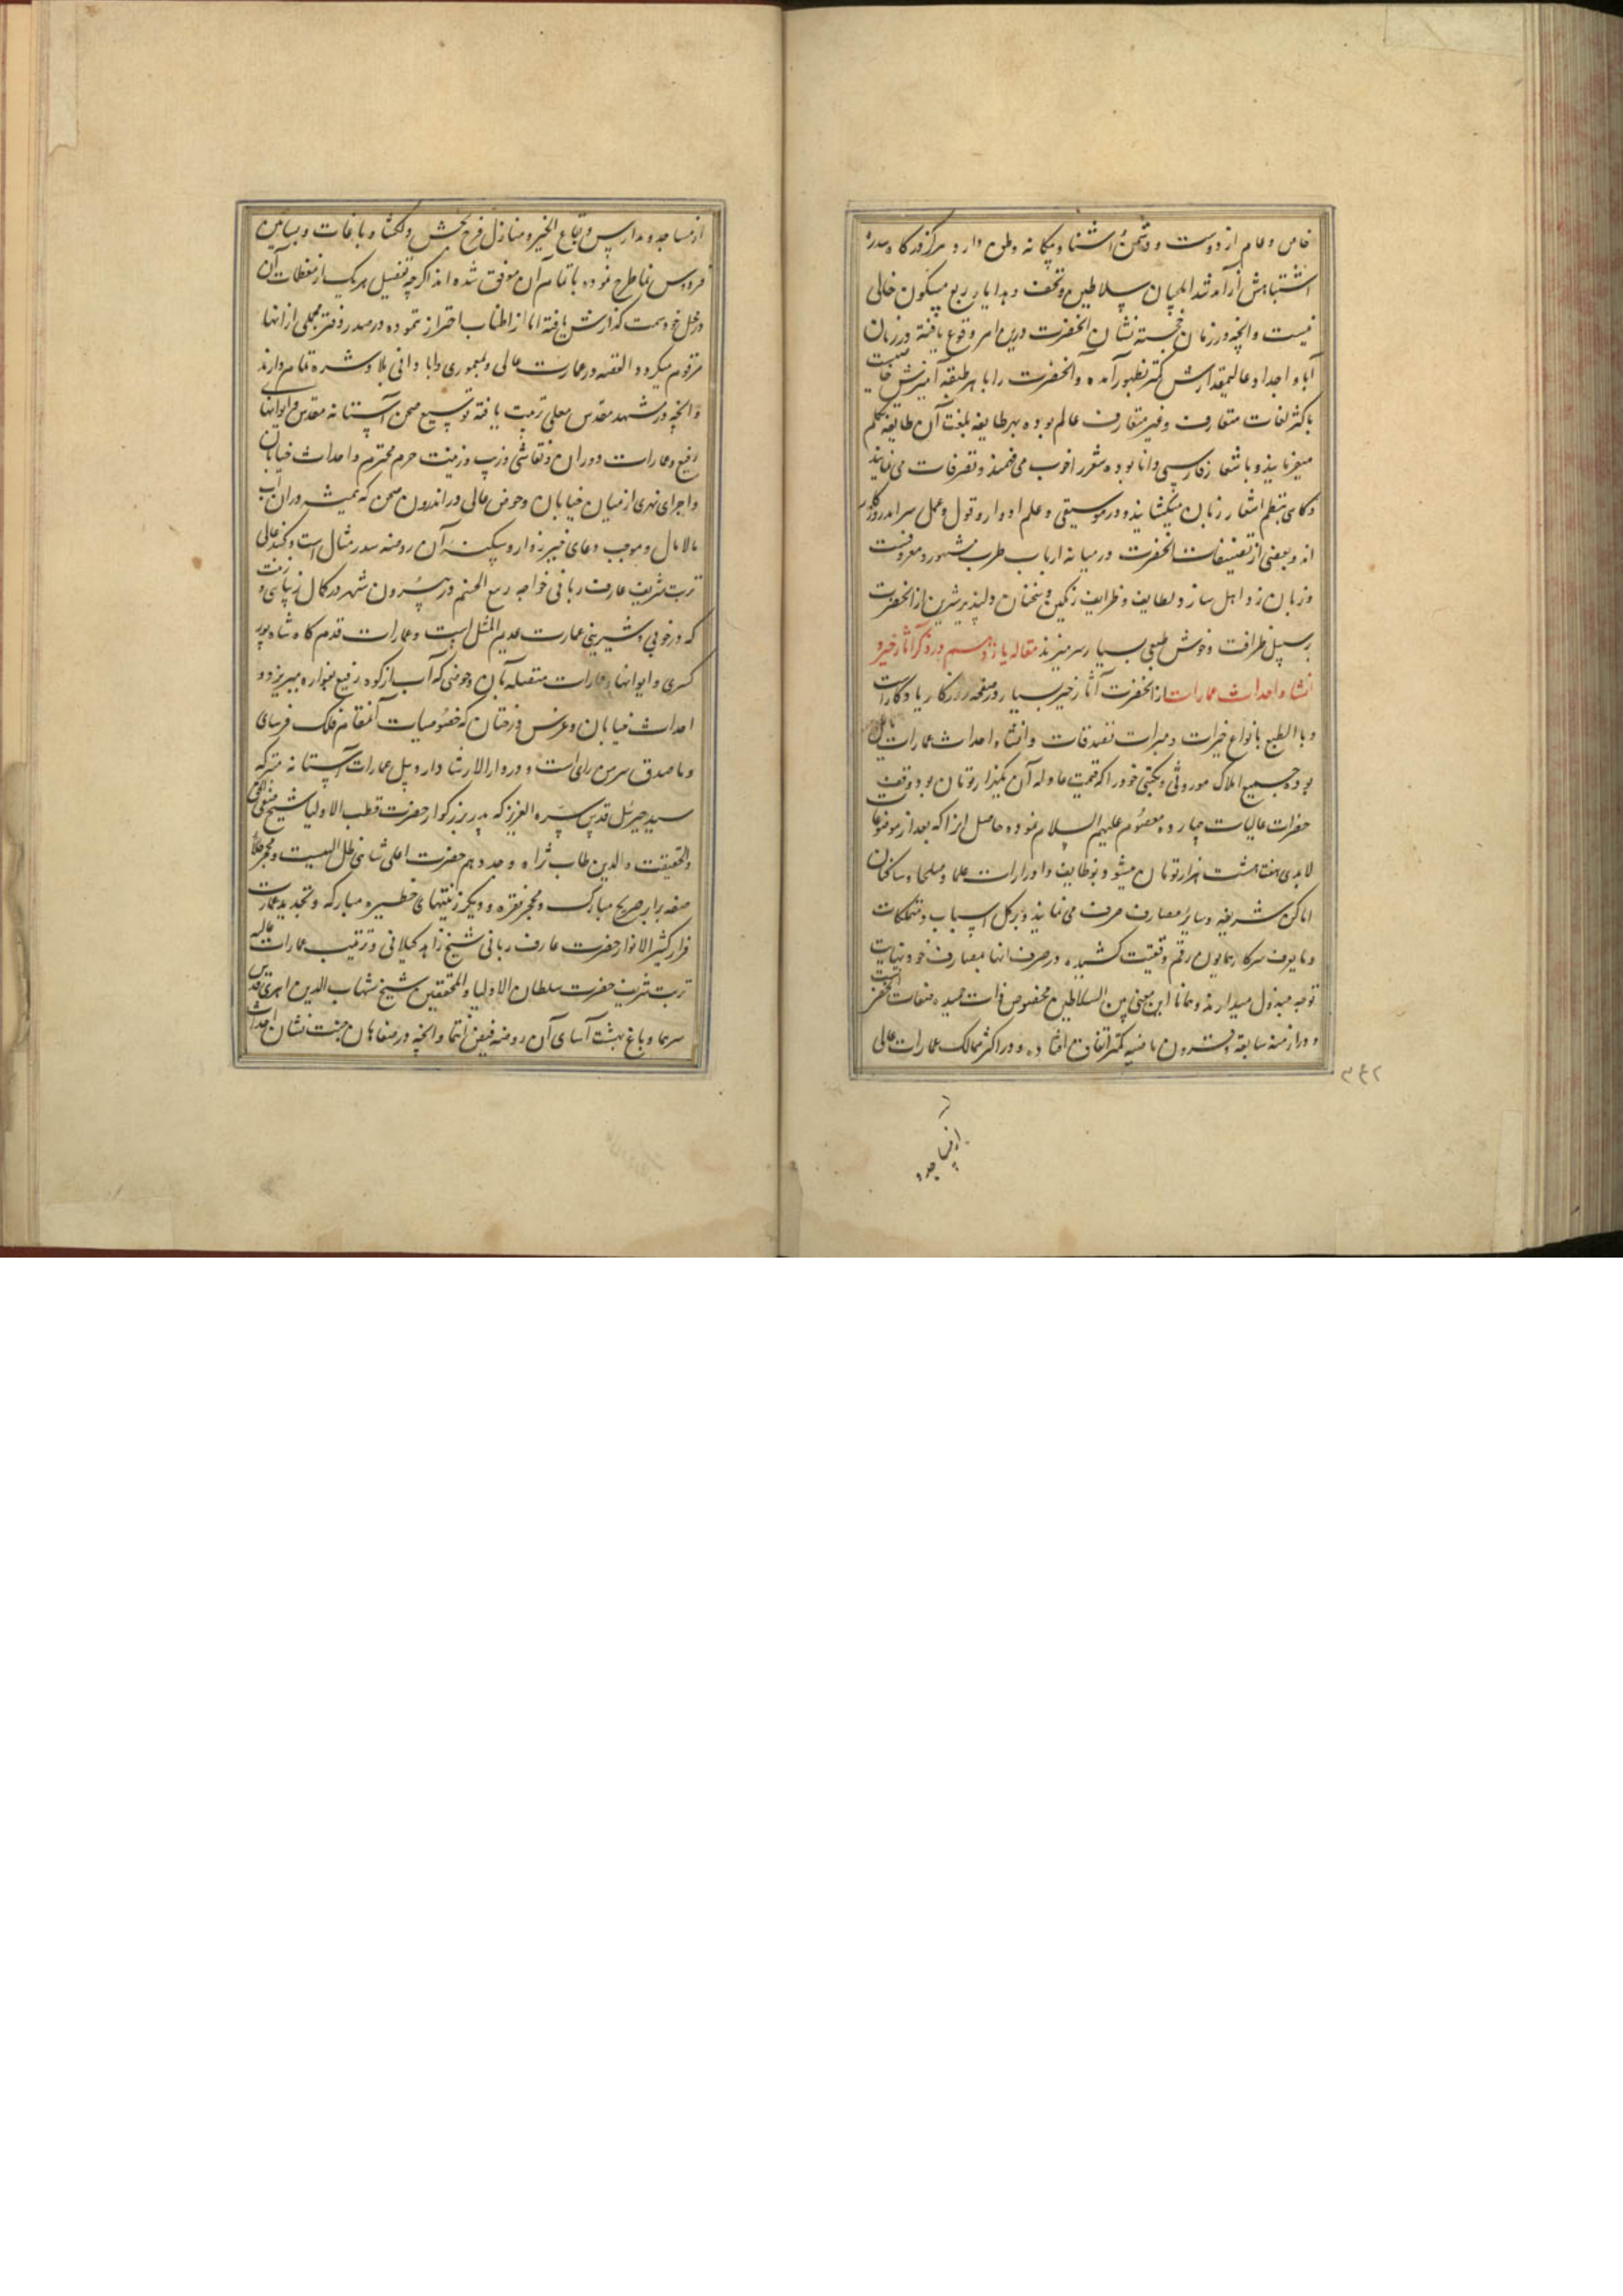 خاص و عام از دوست و دشمن و آشنا و بیگانه وطن دارد و هرگز درگاه سدره
اشتباهش از آمد شد ایلچیان سلاطین و تحف و هدایای ربع مسکون خالی
نیست و آنچه در زمان خجسته نشان آنحضرت درین امر وقوع یافته در زمان
آبا و اجداد عالیمقدارش کمتر بظهور آمده و آنحضرت را با هر طبقه آمیزش خاصیت
باکثر لغات متعارف و غیر متعارف عالم بوده بهر طایفه بلغت آن طایفه تکلم
میفرمایند و باشعار فارسی دانا بوده شعر را خوب می فهمند و تصرفات می نمایند
و گاهی بنظم اشعار زبان میگشایند و در موسیقی و علم ادوار و قول و عمل سرآمد روزگار
اند و بعضی از تصنیفات آنحضرت در میانه ارباب طرب مشهور و معروفست
و زبان زد اهل ساز و لطایف و ظرایف رنگین و سخنان دلپذیر شیرین از آنحضرت
بر سبیل ظرافت و خوش طبعی بسیار سر میزند مقاله یازدهم در ذکر آثار خیر و
انشا و احداث عمارات از آنحضرت آثار خیر بسیار در صفحه روزگار یادگار است
و بالطبع بانواع خیرات و مبرات تصدقات و انشاء و احداث عمارات مایل
بوده جمیع املاک موروثی و مکتسبی خود را که قیمت عادله آن یکهزار تومان بود وقف
حضرات عالیات چهارده معصوم علیهم السلام نموده حاصل آنرا که بعد از موضوعات
لابدی هفت هشت هزار تومان میشود بوظایف و ادرارات علما و صلحا و ساکنان
اماکن شریفه و سایر مصارف صرف می نمایند و بر کل اسباب و متملکات
و مایعرف سرکار همایون رقم وقفیت کشیده در صرف آنها بمصارف خود نهایت
توجه مبذول میدارند و همانا این معنی بین السلاطین مخصوص ذات حمیده صفات آنحضرتست
و در ازمنه سابقه و قرون ماضیه کمتر اتفاق افتاده و در اکثر ممالک عمارات عالی
۳۴۲
از مساجد و
از مساجد و مدارس و بقاع الخیر و منازل فرح بخش دلگشا و باغات و بساتین
فردوس نما طرح نموده باتمام آن موفق شده اند اگر چه تفصیل هر یک از معظمات آن
در محل خود سمت گذارش یافته اما از اطناب احتراز نموده در صدر دفتر مجملی از آنها
مرقوم میگردد القصه در عمارت عالی و معموری و آبادانی بلاد شره تمام دارند
و آنچه در مشهد مقدس معلی ترتیب یافته توسیع صحن آستانه مقدس و ایوانهای
رفیع و عمارات دوران و نقاشی و زیب و زینت حرم محترم و احداث خیابان
و اجرای نهری از میان خیابان و حوض عالی در اندرون صحن که همیشه در آن آب
مالامال و موجب دعای خیر زوار و سکنه آن روضه سدر مثال است و گنبد عالی
تربت شریف عارف ربانی خواجه ربیع الخثیم در بیرون شهر در کمال زیبای و زینت
که در خوبی و شیرینی عمارت عدیم المثل است و عمارات قدم گاه شاه پور
کسری و ایوانها و عمارات متصله بآن و حوضی که آب از کوه رفیع بفواره میریزد و
احداث خیابان و غرس درختان که خصوصیات آنمقام فلک فرسای
و ماصدق سر من رأی است و در دار الارشاد اردبیل عمارات آستانه متبرکه
سید جبرئیل قدس سره العزیز که پدر بزرگوار حضرت قطب الاولیا شیخ صفی الحق
والحقیقت والدین طاب ثراه و جد دهم حضرت اعلی شاهی ظل اللهیست و محجر طلا
صفه برابر ضریح مبارک و محجر نقره و دیگر زینتهای خطیره مبارکه و تجدید عمارت
مزار کثیر الانوار حضرت عارف ربانی شیخ زاهد گیلانی و ترتیب عمارات عالیه
تربت شریف حضرت سلطان الاولیا و المحققین شیخ شهاب الدین اهری قدس
سرهما و باغ بهشت آسای آن روضه فیض انتما و آنچه در صفاهان جنت نشان احداث